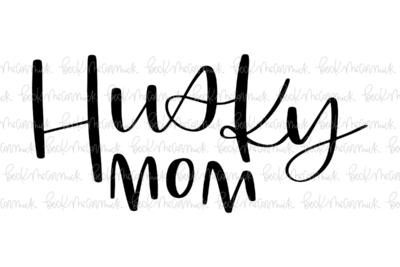 Husky
MOM